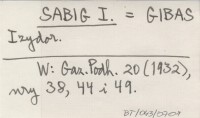 SABIG I. = GIBAS
Izydor.
W: Gaz. Podh. 20 (1932),
nry 38, 44 i 49.